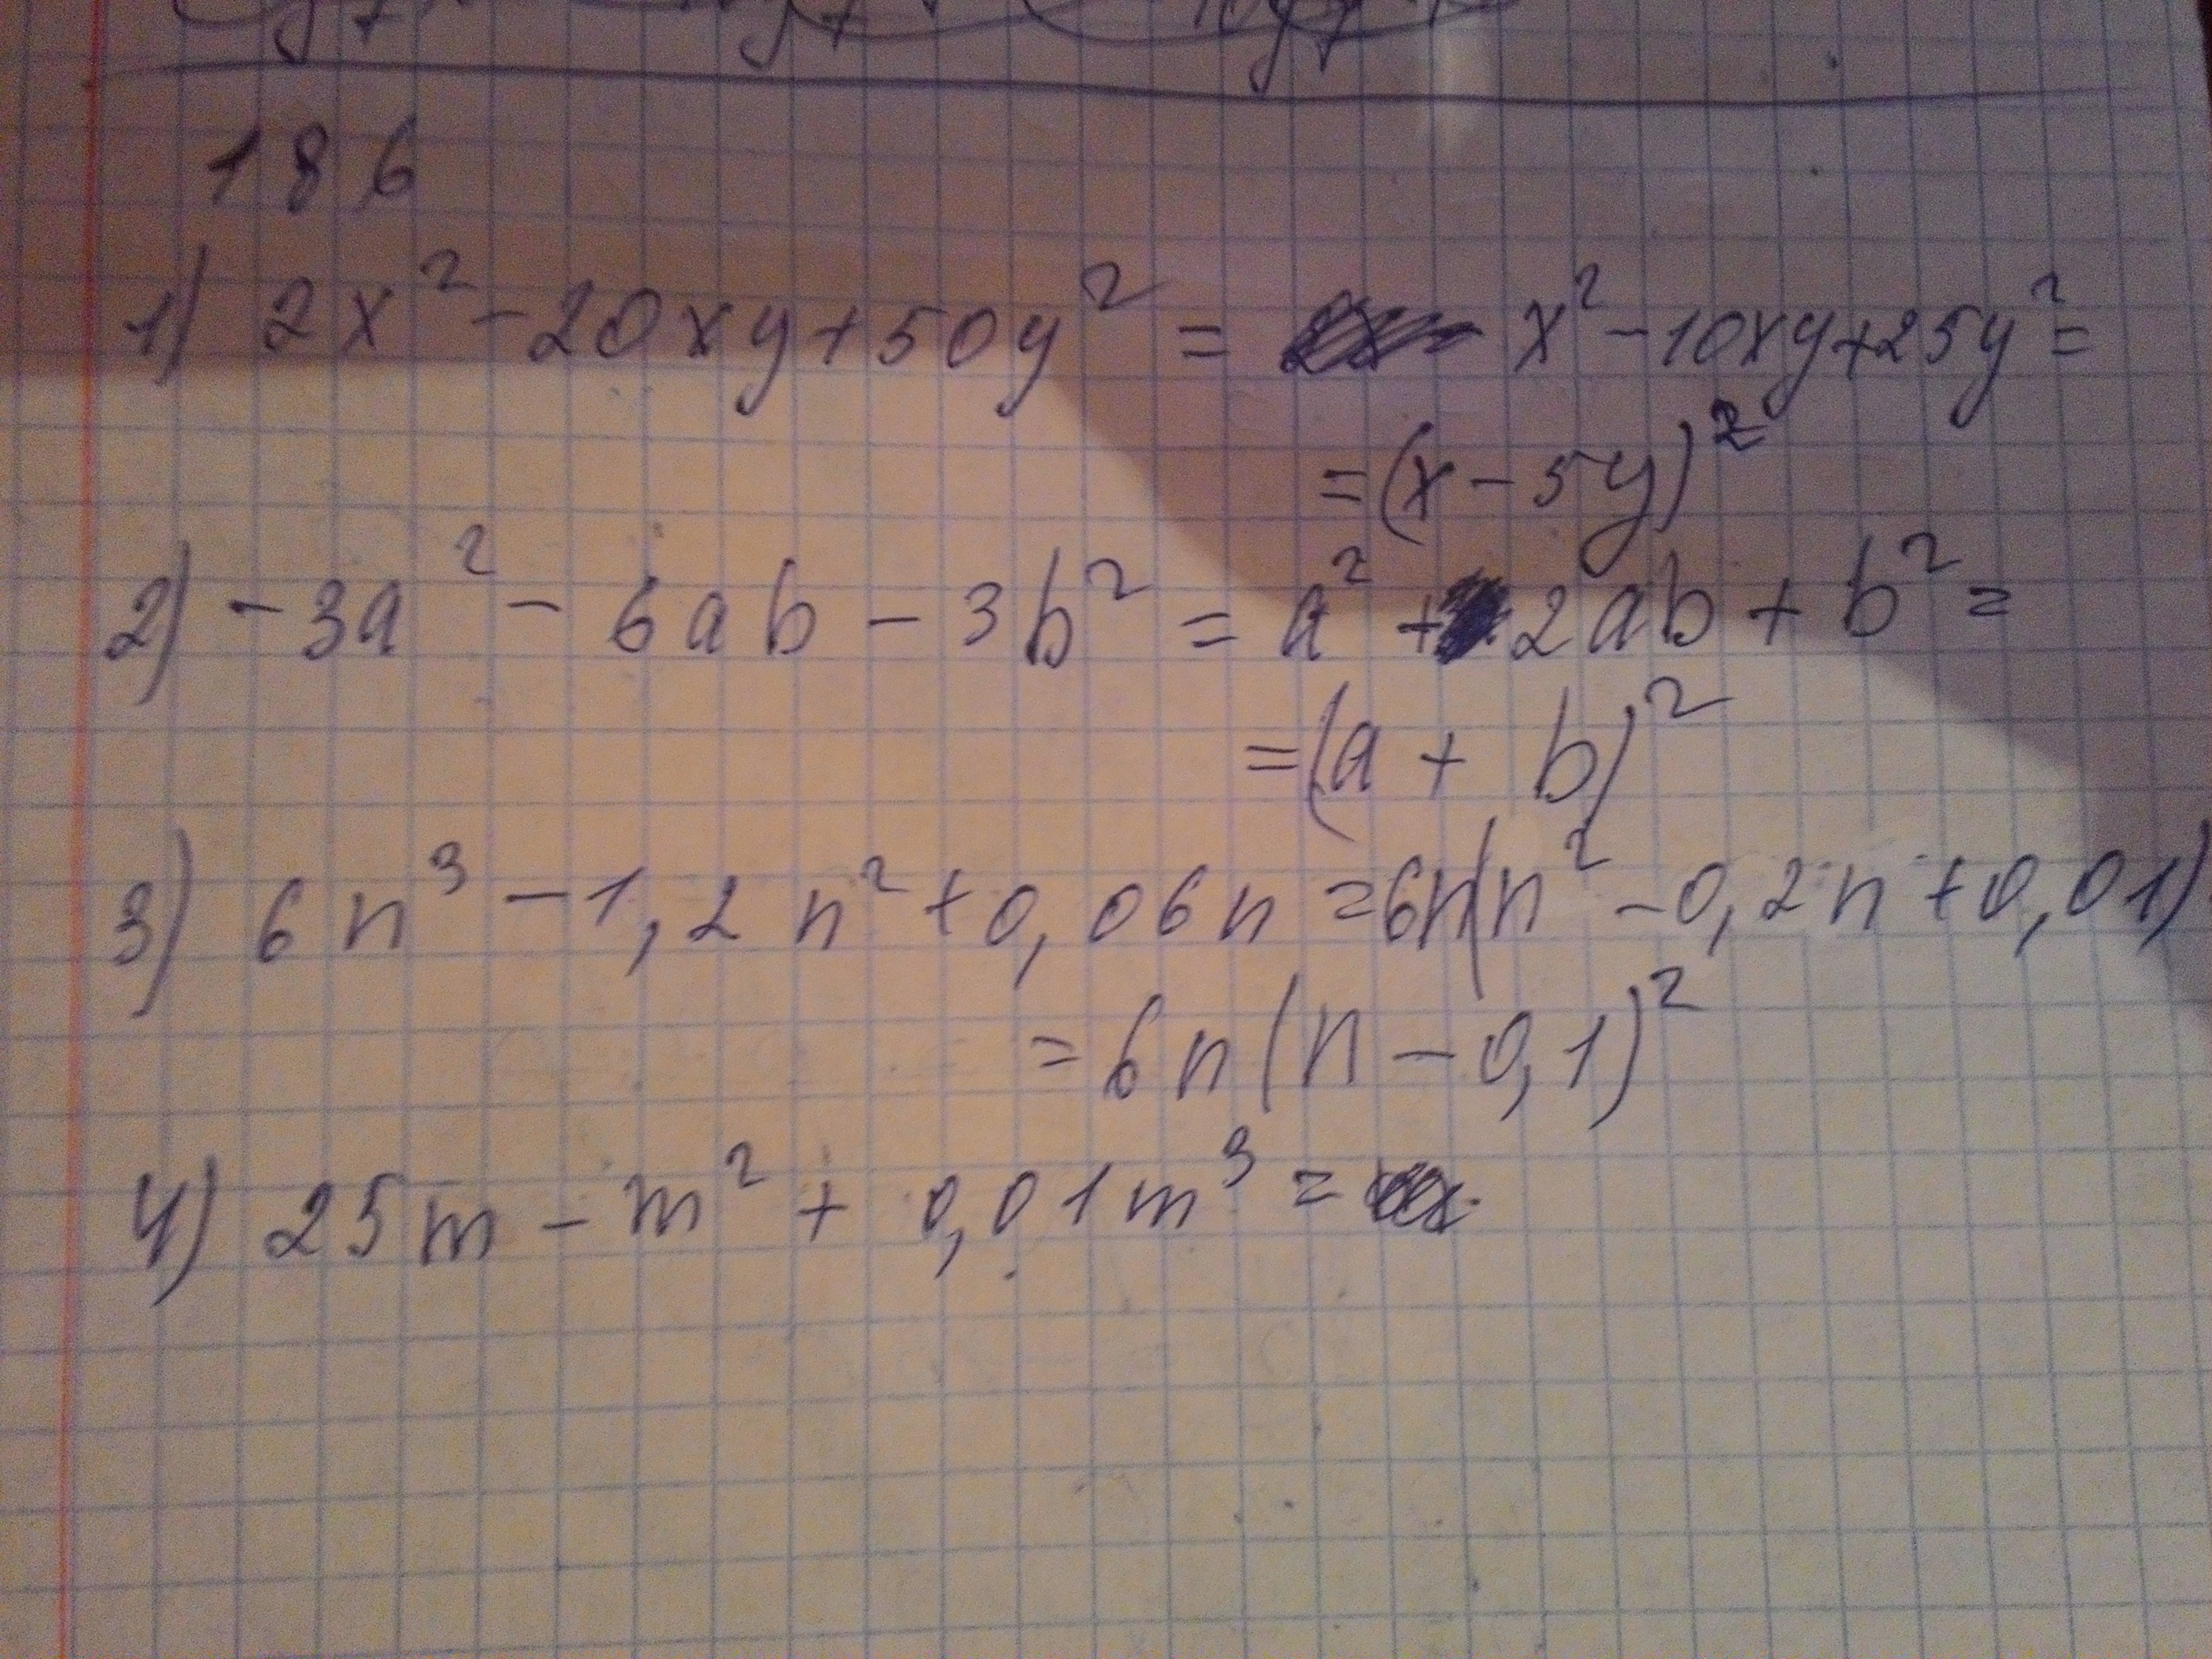 186
1) 2x² - 20xy + 50y² = x² - 10xy + 25y² =
= (x - 5y)²
2) - 3a² - 6ab - 3b² = a² + 2ab + b² =
= (a + b)²
3) 6n³ - 1,2n² + 0,06n = 6n(n² - 0,2n + 0,01)
= 6n(n - 0,1)²
4) 25m - m² + 0,01m³ =